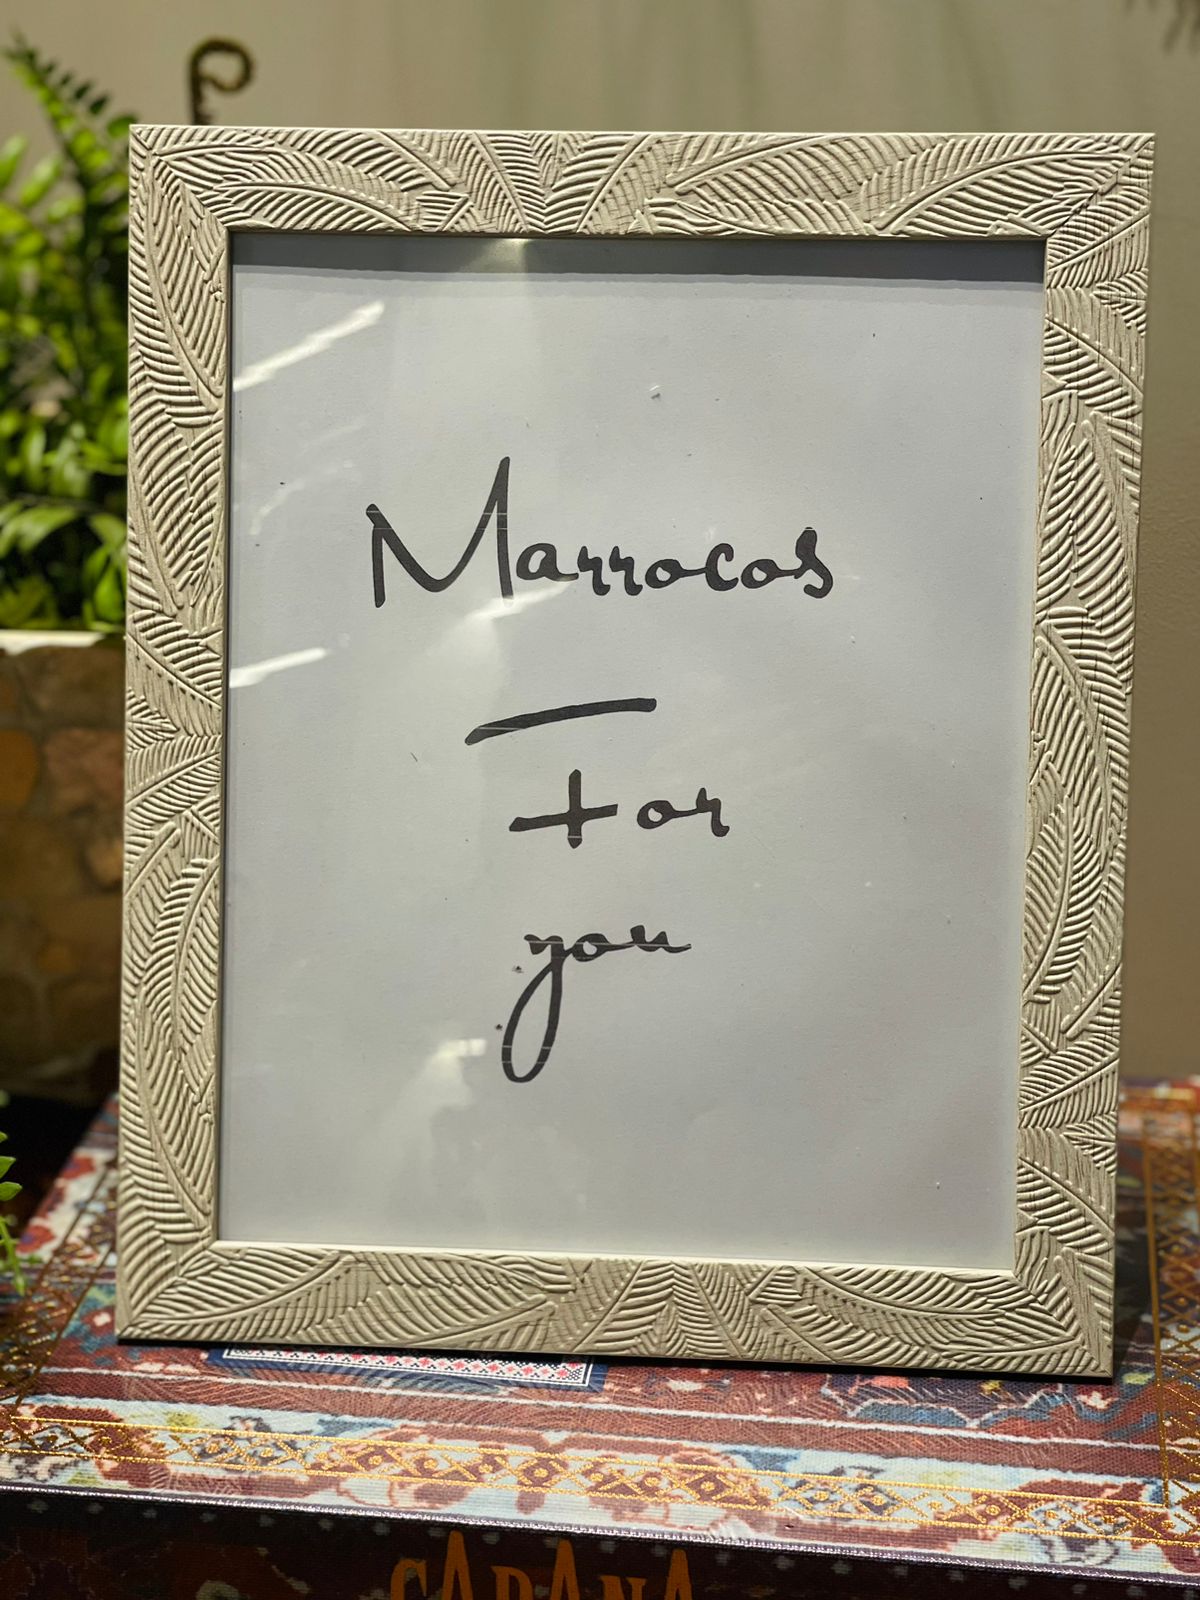 Marrocos
For
you
CABANA